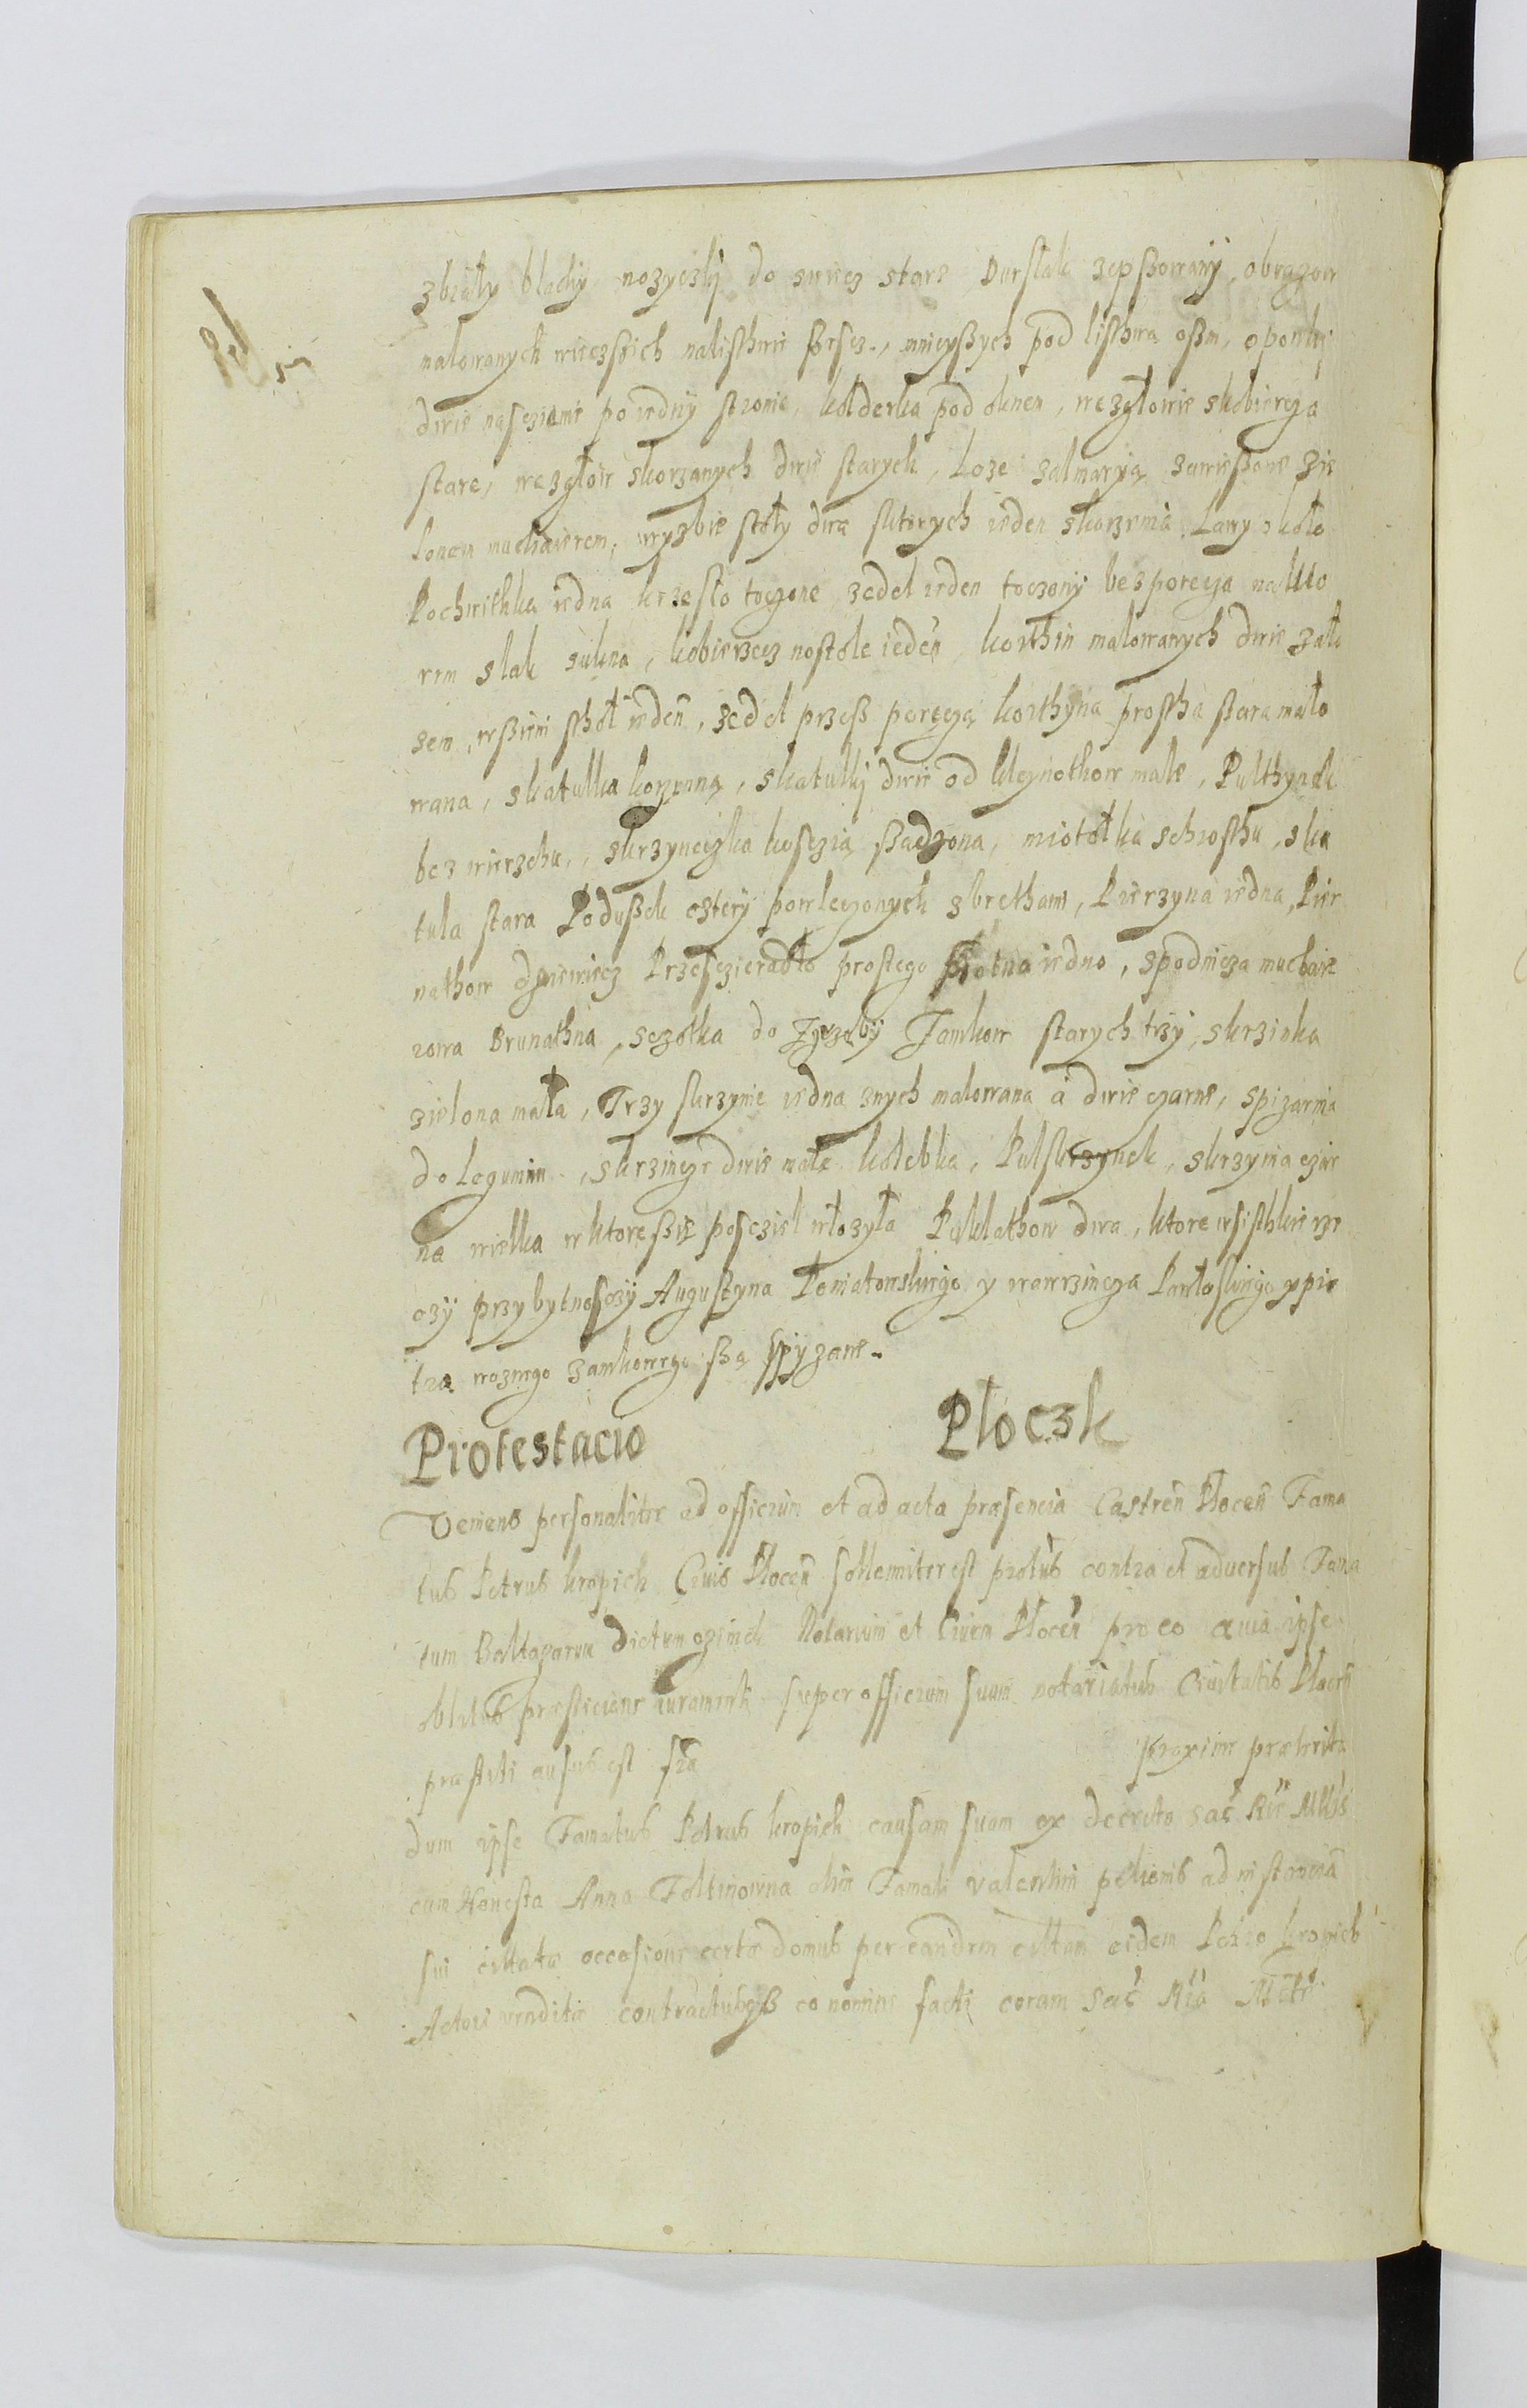 zbiały blachy nozyczki do swiecz stare Durslak zepssowany, obrazow
malowanych wieczssich nalisthwie ssescz, mnieyssych pod listhwą ossm, oponki
dwie nasczianie po iedny stronie, kolderka pod oknem, wezgłowie skobiercza
stare, wezgłow skorzanych dwie starych, Loze zalmaryą zawiessone zie
lonem muchaierem, wyzbie stoły dwa sktorych ieden skorzenia, Lawy około
Pochwithka iedna krzesło toczone zedel ieden toczony bes porecza na kto
rem slak sukna, kobierzecz nastole ieden, korthin malowanych dwie zatł
sem, wssieni sthoł ieden, zedel przess poręczą korthyna prostha stara malo
wana, skatulka korzenna, skatulki dwie od kleynothow male, Pulthynek
bez wierzchu, skrzyneczka kosczią ssadzona, miotołka schrosthu, ska
tula stara Podussek cztery powleczonych sbrethami, Pierzyna iedna, Pier
nathow dziewiecz Przesczieradło prostego płotna iedno, spodnicza muchaie
rowa Brunathna, sczotka do Zgrzeby Zamkow starych trzy, skrzinka
zielona mała, Trzy skrzynie iedna znych malowana a dwie czarne, spizarnia
do Legumin, skrzincze dwie małe kolebka, Pulskrzynek, skrzynia czar
na wielka wktore ssie posciel włozyła Puklathow dwa, ktore wsisthkie rze
czy przy bytnosczy Augustyna Poniatowskiego y wawrzincza Pawłoskiego y pio
tra woznego zamkowego ssą spyzane.
Protestacio Płoczk
Veniens personaliter ad officium et ad acta præsencia Castren Plocen Fama
tus Petrus kropich Civis Plocen sollemniter est protus contra et adversus Fama
tum Baltazarem dictum ozinek Notarium et Civem Plocen pro eo quia ipse
oblitus præsticione iuramenti super officium suum notariatus Civitatis Plocen
præstiti ausus est fra proxime præterita
dum ipse Famatus Petrus kropich causam suam ex decreto sac Rie Mtis
cum Honesta Anna Foltinowna olim Famati Valentini pelionis ad instanciam
sui citata occasione certæ domus per eandem cittam eidem Petro kropich
Actori venditæ contractusqß eo nomine facti coram Sac Ria Mtte